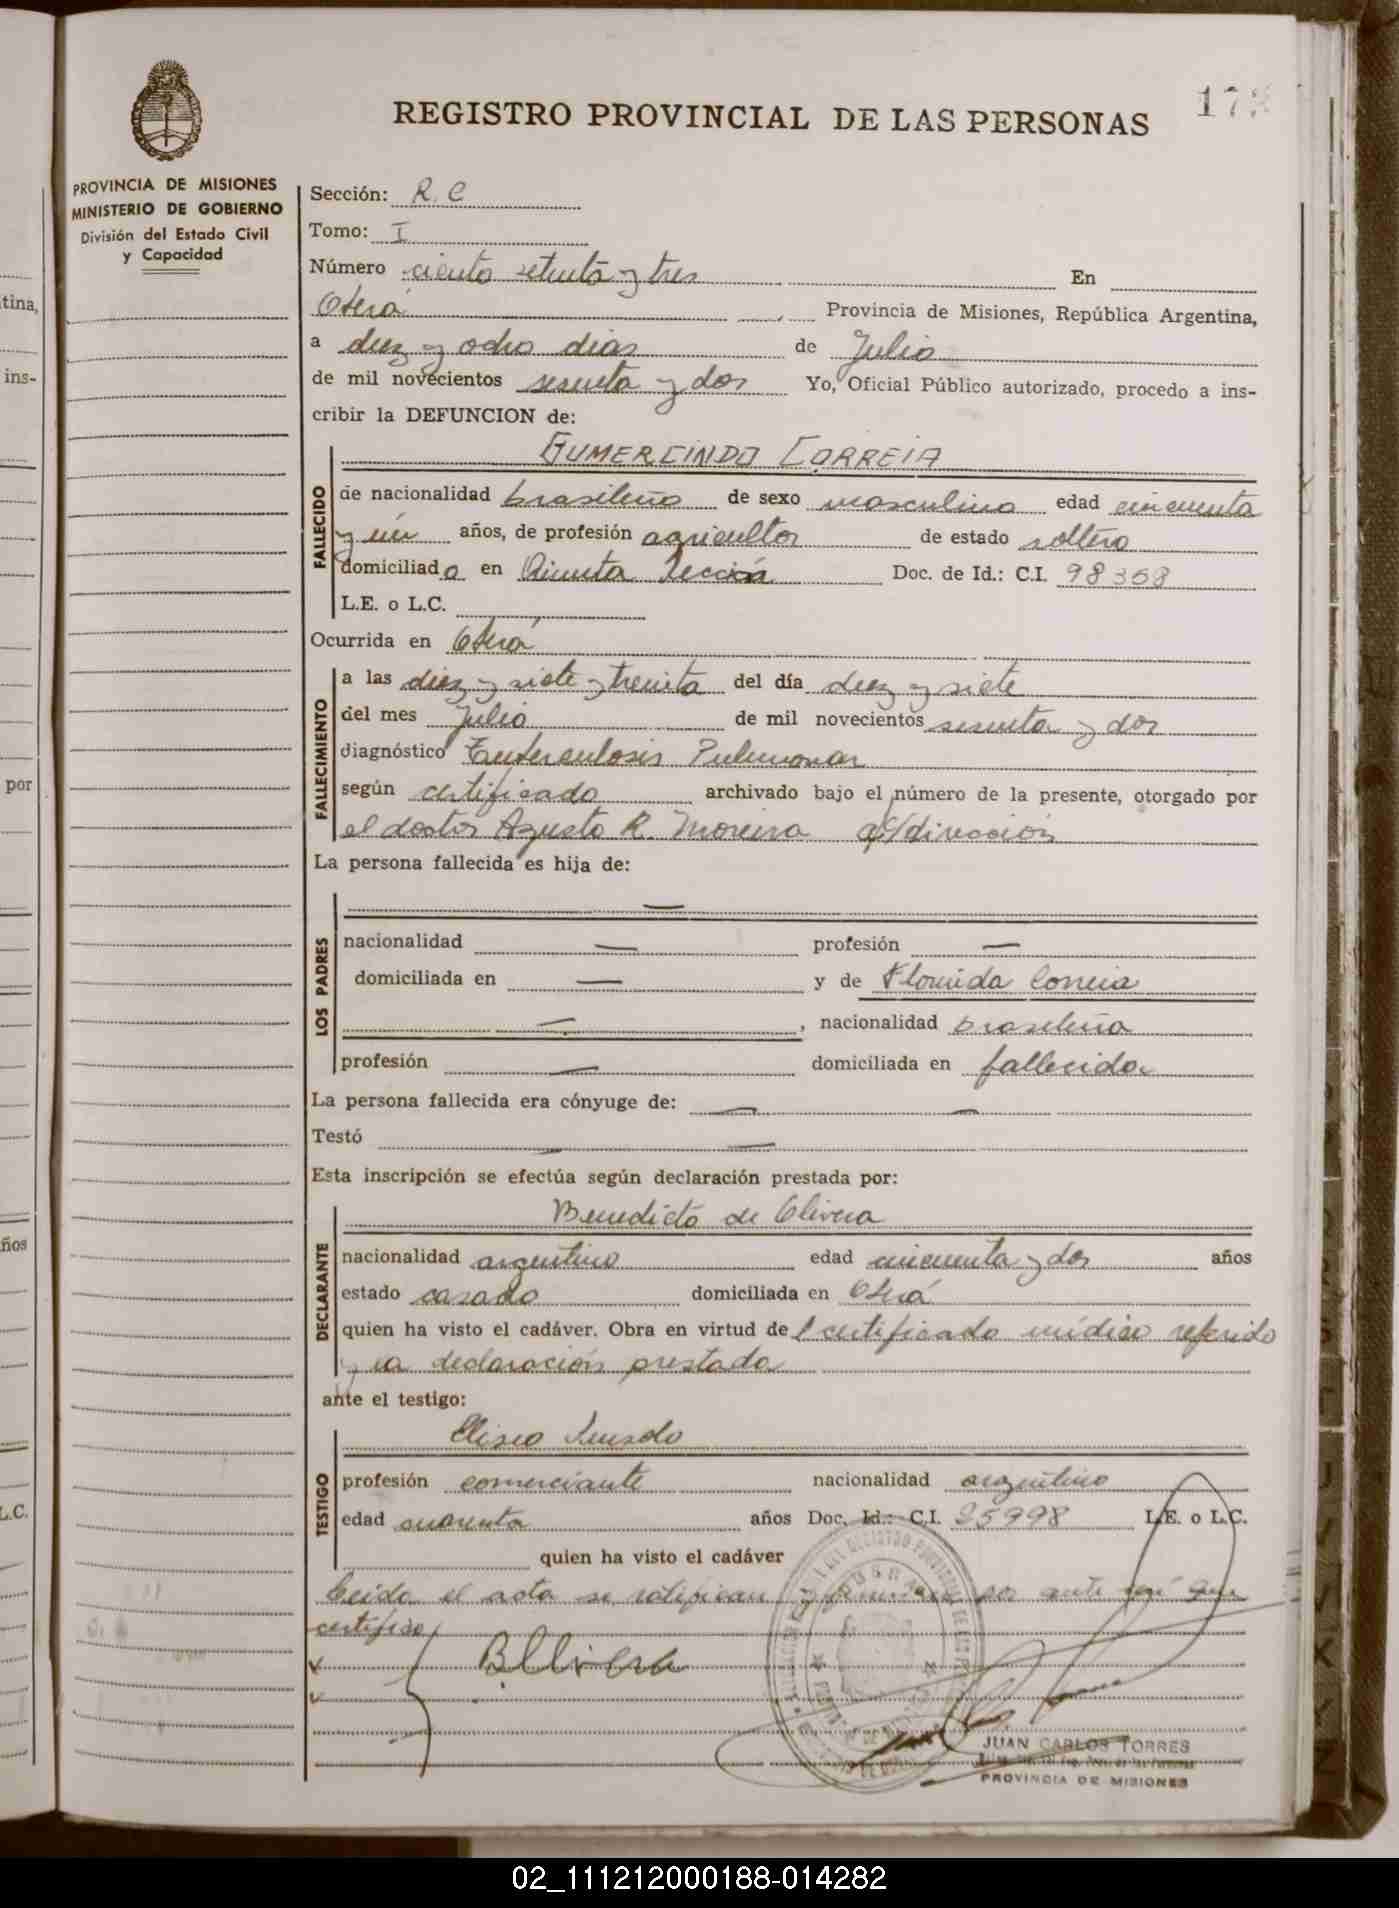 REGISTRO PROVINCIAL DE LAS PERSONAS
PROVINCIA DE MISIONES
MINISTERIO DE GOBIERNO
División del Estado Civil
y Capacidad
Sección: R. C
Tomo: I
Número ciento setenta y tres En
Oberá Provincia de Misiones, República Argentina,
a diez y ocho dias de Julio
de mil novecientos sesenta y dos Yo, Oficial Público autorizado, procedo a ins-
cribir la DEFUNCION de:
GUMERCINDO CORREIA
FALLECIDO
de nacionalidad brasileño de sexo masculino edad cincuenta
y un años, de profesión agricultor de estado soltero
domiciliado en Quinta Sección Doc. de Id.: C.I. 98368
L.E. o L.C.
Ocurrida en Oberá
FALLECIMIENTO
a las diez y siete y treinta del día diez y siete
del mes Julio de mil novecientos sesenta y dos
diagnóstico Tuberculosis Pulmonar
según certificado archivado bajo el número de la presente, otorgado por
el doctor Agusto R. Moreira dirección
La persona fallecida es hija de:
—
LOS PADRES
nacionalidad — profesión —
domiciliada en — y de Florinda Correia
—, nacionalidad brasileña
profesión — domiciliada en fallecida
La persona fallecida era cónyuge de: — —
Testó — —
Esta inscripción se efectúa según declaración prestada por:
Benedicto de Olivera
DECLARANTE
nacionalidad argentino edad cincuenta y dos años
estado casado domiciliada en Oberá
quien ha visto el cadáver. Obra en virtud del certificado médico referido
y la declaración prestada
ante el testigo:
Eliseo
TESTIGO
profesión comerciante nacionalidad argentino
edad cuarenta años Doc. Id.: C.I. 25998 L.E. o L.C.
quien ha visto el cadáver
Leida el acta se ratifican firmando por ante mí que
certifico
B Olivera
JUAN CARLOS TORRES
PROVINCIA DE MISIONES
tina,
ins-
por
ños
L.C.
02_111212000188-014282